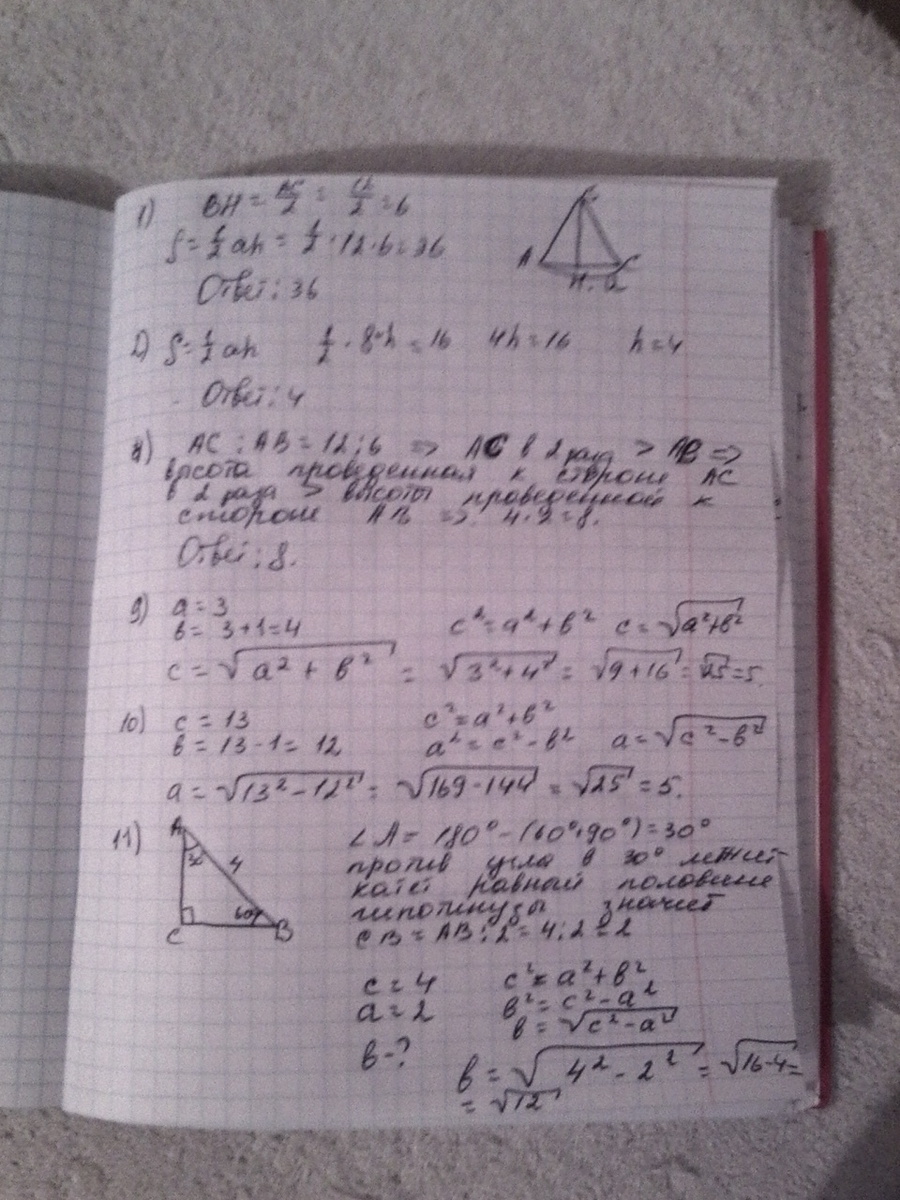 1) BH = AC/2 = 12/2 = 6
S = 1/2 ah = 1/2 · 12 · 6 = 36
Ответ: 36
A H C
2) S = 1/2 ah 1/2 · 8 · h = 16 4h = 16 h = 4
Ответ: 4
AC : AB = 12 : 6 => AC в 2 раза > AB =>
высота проведенная к стороне AC
в 2 раза > высоты проведенной к
стороне AB => 4 · 2 = 8.
Ответ: 8.
9) a = 3
в = 3+1=4 c² = a² + в² c = √a²+в²
c = √a² + в² = √3²+4² = √9+16 = √25 = 5.
10) c = 13 c² = a² + в²
в = 13-1 = 12 a² = c² - в² a = √c² - в²
a = √13² - 12² = √169 - 144 = √25 = 5.
11) A 30 4 60° C B
∠A = 180° - (60°+90°) = 30°
против угла в 30° лежит
катет равный половине
гипотинузы значит
CB = AB : 2 = 4 : 2 = 2
c = 4 c² = a² + в²
a = 2 в² = c² - a²
в = √c² - a²
в - ?
в = √4² - 2² = √16-4 =
= √12